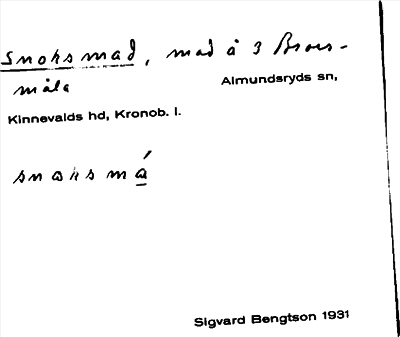 Snoksmad, mad å 3 Brors-
måla
Almundsryds sn,
Kinnevalds hd, Kronob. l.
snoksmá
Sigvard Bengtson 1931